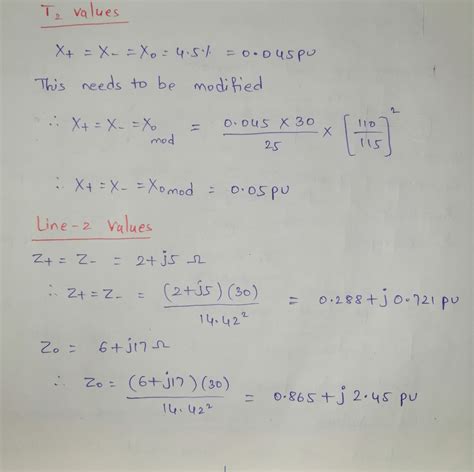 T₂ values
X+ = X- = X₀ = 4.5% = 0.045pu
This needs to be modified
∴ X+ = X- = X₀ mod = 0.045 X 30 / 25 × [110 / 115]²
∴ X+ = X- = X₀mod = 0.05 pu
Line-2 values
Z+ = Z- = 2+j5 Ω
∴ Z+ = Z- = (2+j5)(30) / 14.42² = 0.288+j0.721 pu
Z₀ = 6+j17 Ω
∴ Z₀ = (6+j17)(30) / 14.42² = 0.865+j 2.45 pu